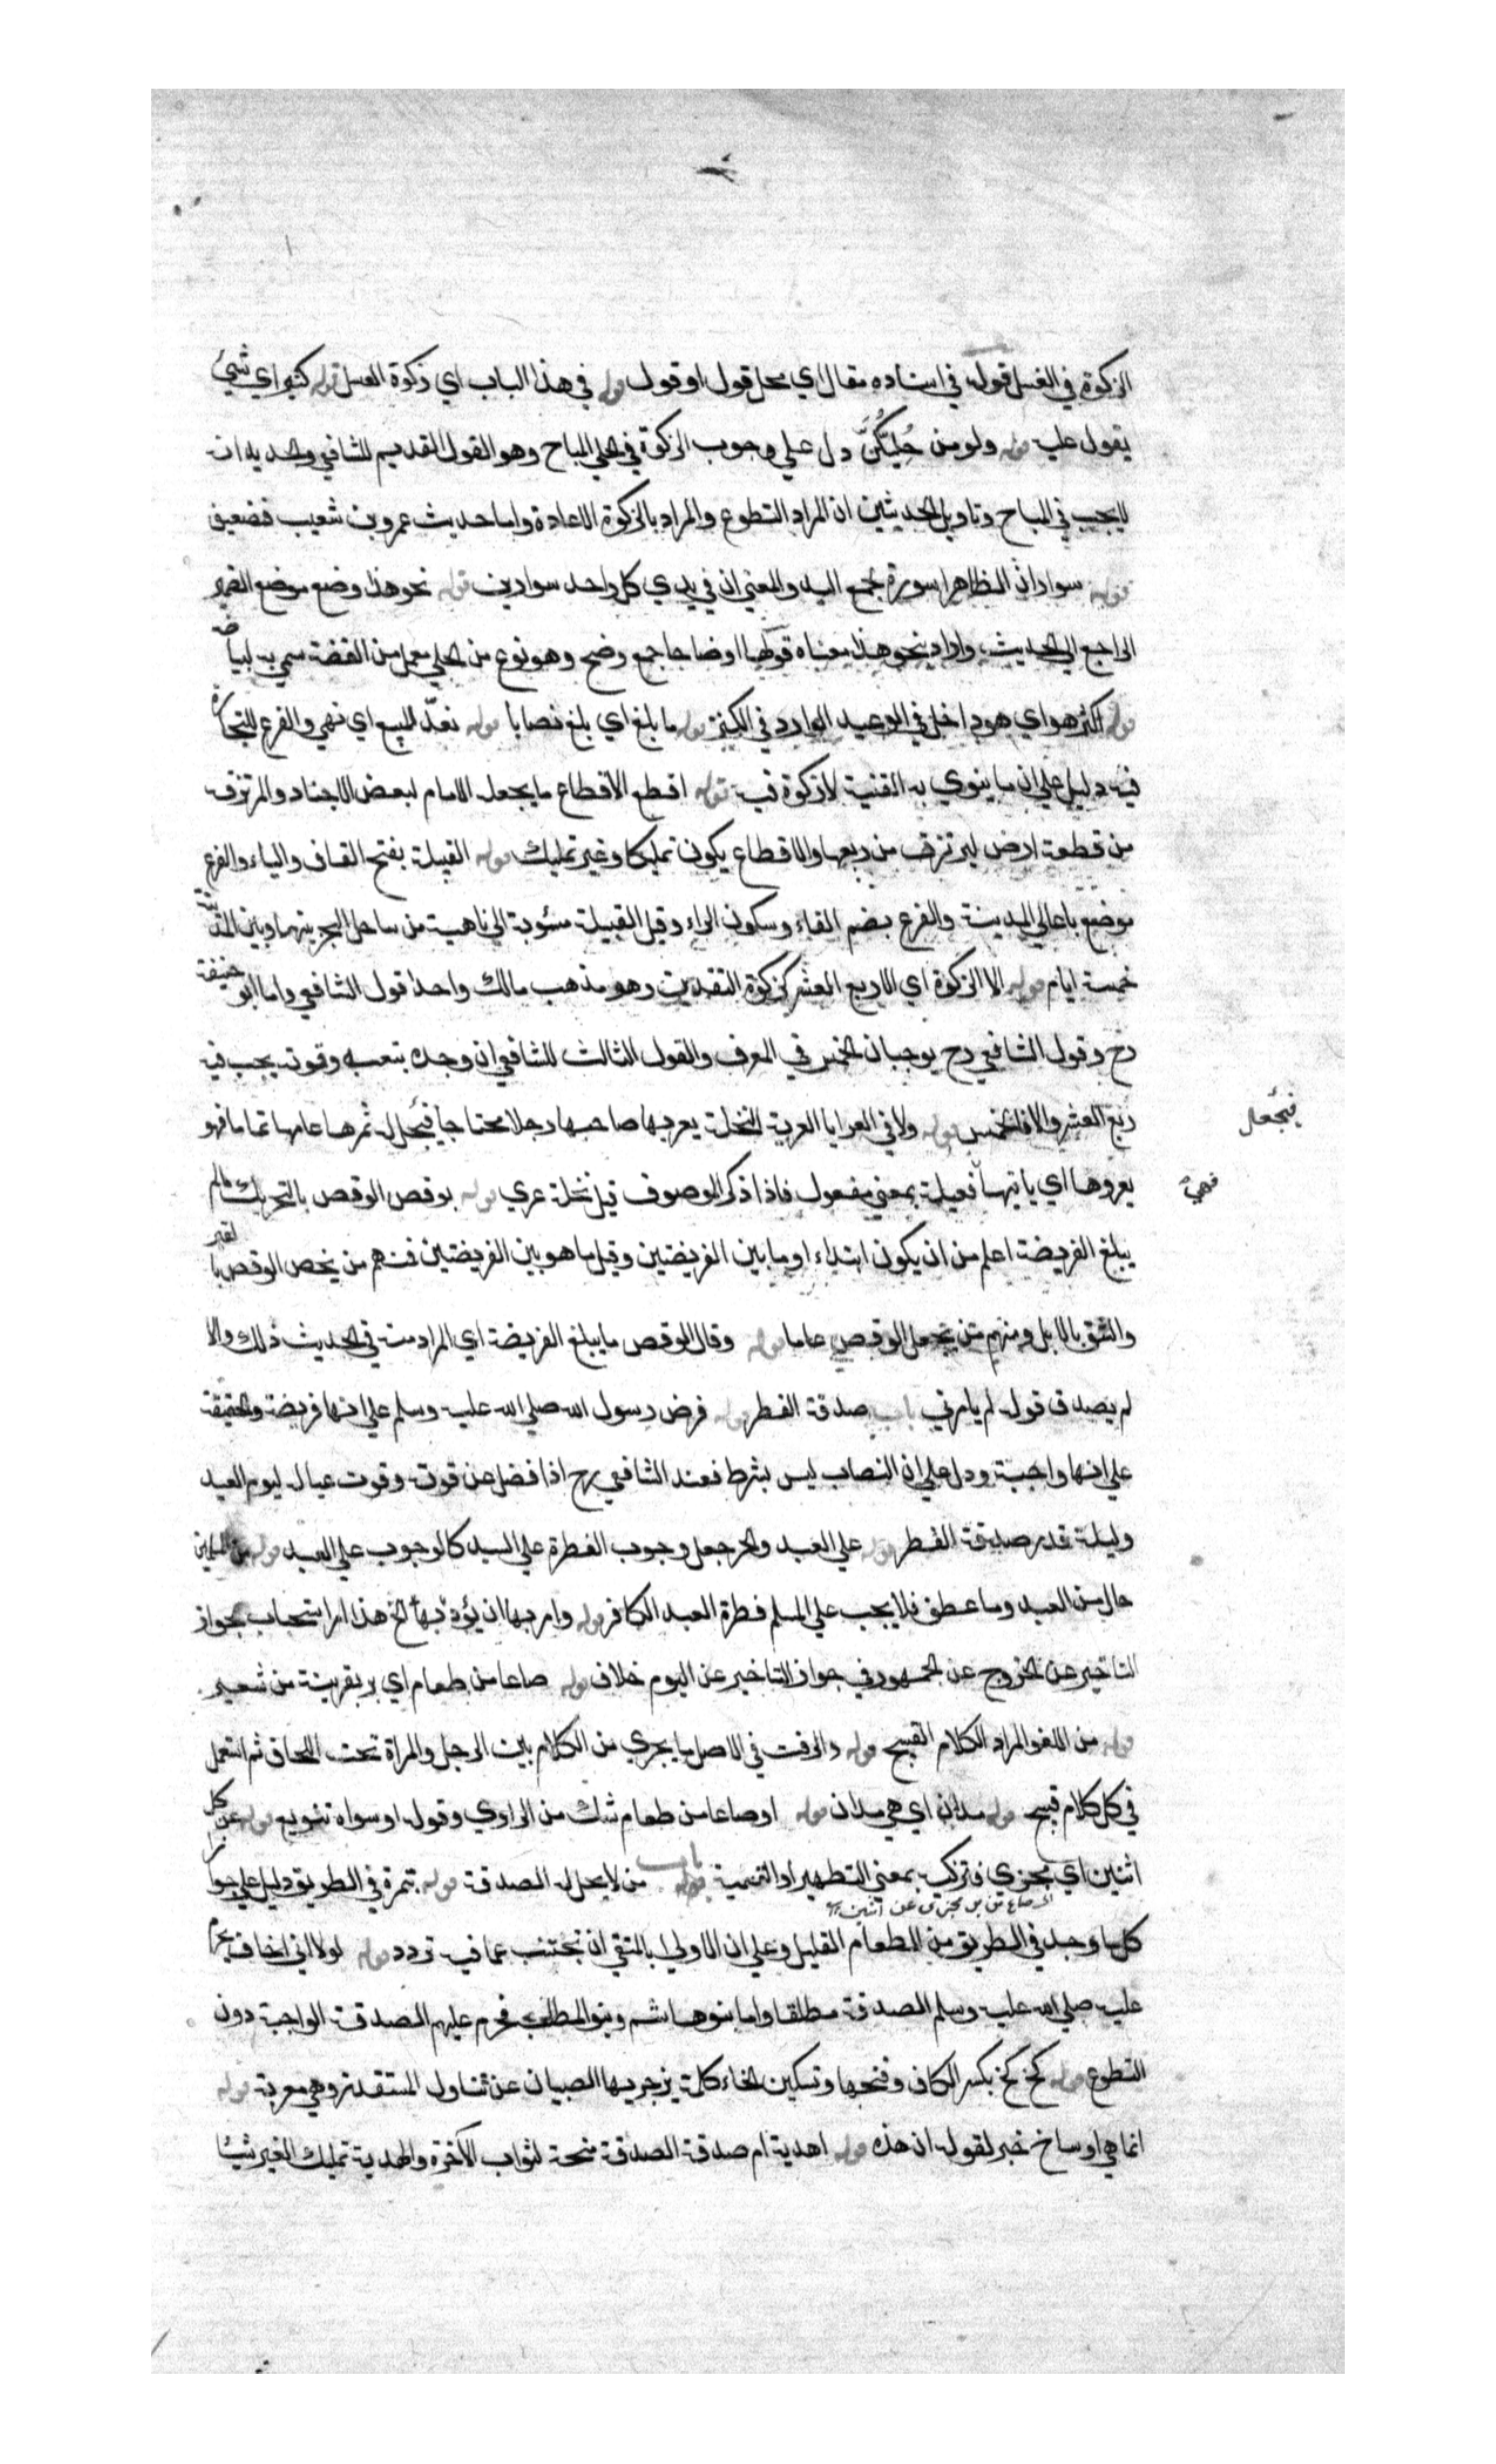 الزكوة في العسل قوله في اسناده مقال اي محل قول او قول قوله في هذا الباب اي زكوة العسل قوله كثير اي شيئ
يقول عليه قوله ولو من حُلِيِّكُنَّ دل علي وجوب الزكوة في الحلي المباح وهو القول القديم للشافعي والجديد انه
لايجب في المباح وتاويل الحديثين ان المراد التطوع والمراد بالزكوة الاعادة واما حديث عمرو بن شعيب فضعيف
قوله سواران الظاهر اسورة لجمع اليد والمعني ان في يدي كل واحد سوارين قوله نحو هذا وضع موضع الضمير
الراجع الي الحديث واراد بنحو هذا معناه قولها اوضاحا جمع وضح وهو نوع من الحلي يعمل من الفضة سمي به لبياضه
قوله اكنز هو اي هو داخل في الوعيد الوارد في الكنز قوله ما بلغ اي بلغ نصابا قوله نعدّ للبيع اي نهيئ والفرع للتجارة
فيه دليل علي ان ما ينوي به القنية لا زكوة فيه قوله اقطع الاقطاع ما يجعله الامام لبعض الاجناد والمرتزقه
من قطعة ارض ليرتزق من ريعها والاقطاع يكون تمليكا وغير تمليك قوله القبلية بفتح القاف والباء والفرع
موضع باعالي المدينة والفرع بضم الفاء وسكون الراء وقيل القبيلة منسوبة الي ناحية من ساحل البحر بينها وبين المدينة
خمسة ايام قوله الا الزكوة اي الا ربع العشر كزكوة النقدين وهو مذهب مالك واحد اقول الشافعي واما ابو حنيفة
رح وقول الشافعي رح يوجبان الخمس في المعرف والقول الثالث للشافعي ان وجده بتعب وقوته يجب فيه
ربع العشر والا فالخمس قوله ولا في العرايا العرية النخلة يعريها صاحبها رجلا محتاجا فيجعل له ثمرها عامها تماما فهو
فيجعل
يعروها اي ياتيها فعيلة بمعني مفعول فاذا ذكر الموصوف قيل نخلة عري قوله بوقص الوقص بالتحريك مالم
فهي
يبلغ الفريضة اعلم من ان يكون ابتداء او ما بين الفريضتين وقيل ما هو بين الفريضتين فمنهم من يخص الوقص بالبقر
والشنق بالابل ومنهم من يجعل الوقص عاما قوله وقال الوقص ما يبلغ الفريضة اي المراد منه في الحديث ذلك والا
لم يصدق قوله لم يامرني باب صدقة الفطر قوله فرض رسول الله صلي الله عليه وسلم علي انها فريضة والحنفية
علي انها واجبة ودل علي ان النصاب ليس بشرط فعند الشافعي رح اذا فضل عن قوته وقوت عياله ليوم العيد
وليلته قدر صدقة الفطر قوله علي العبد والحر جعل وجوب الفطرة علي السيد كالوجوب علي العبد قوله من المسلمين
حال من العبد وما عطف فلا يجب علي المسلم فطرة العبد الكافر قوله وامر بها ان يؤدّ بها الخ هذا امر استحباب بجواز
التاخير عن الخروج عن الجمهور في جواز التاخير عن اليوم خلاف قوله صاعا من طعام اي بر بقرينة من شعير
قوله من اللغو المراد الكلام القبيح قوله والرفث في الاصل ما يجري من الكلام بين الرجل والمراة تحت اللحاف ثم استعمل
في كل كلام قبيح قوله مدان اي هي مدان قوله او صاعا من طعام شك من الراوي وقوله او سواه تنويع قوله عن كل
اثنين اي مجزي فتزكيه بمعني التطهير او التنمية باب قوله من لا يحل له الصدقة قوله بتمرة في الطريق دليل علي جواز
صاع من بر يجزى عن اثنين
كل ما وجد في الطريق من الطعام القليل وعلي ان الاولي بالمتقي ان تجتنب عما فيه تردد قوله لولا اني اخاف يحرم
عليه صلي الله عليه وسلم الصدقة مطلقا واما بنو هاشم وبنو المطلب فحرم عليهم الصدقة الواجبة دون
التطوع قوله كخ كخ بكسر الكاف وفتحها وتسكين الخاء كلمة يزجر بها الصبيان عن تناول المستقذر وهي معربة قوله
انما هي اوساخ خبر لقوله ان هذه قوله اهدية ام صدقة الصدقة منحة لثواب الآخرة والهدية تمليك الغير شيئا